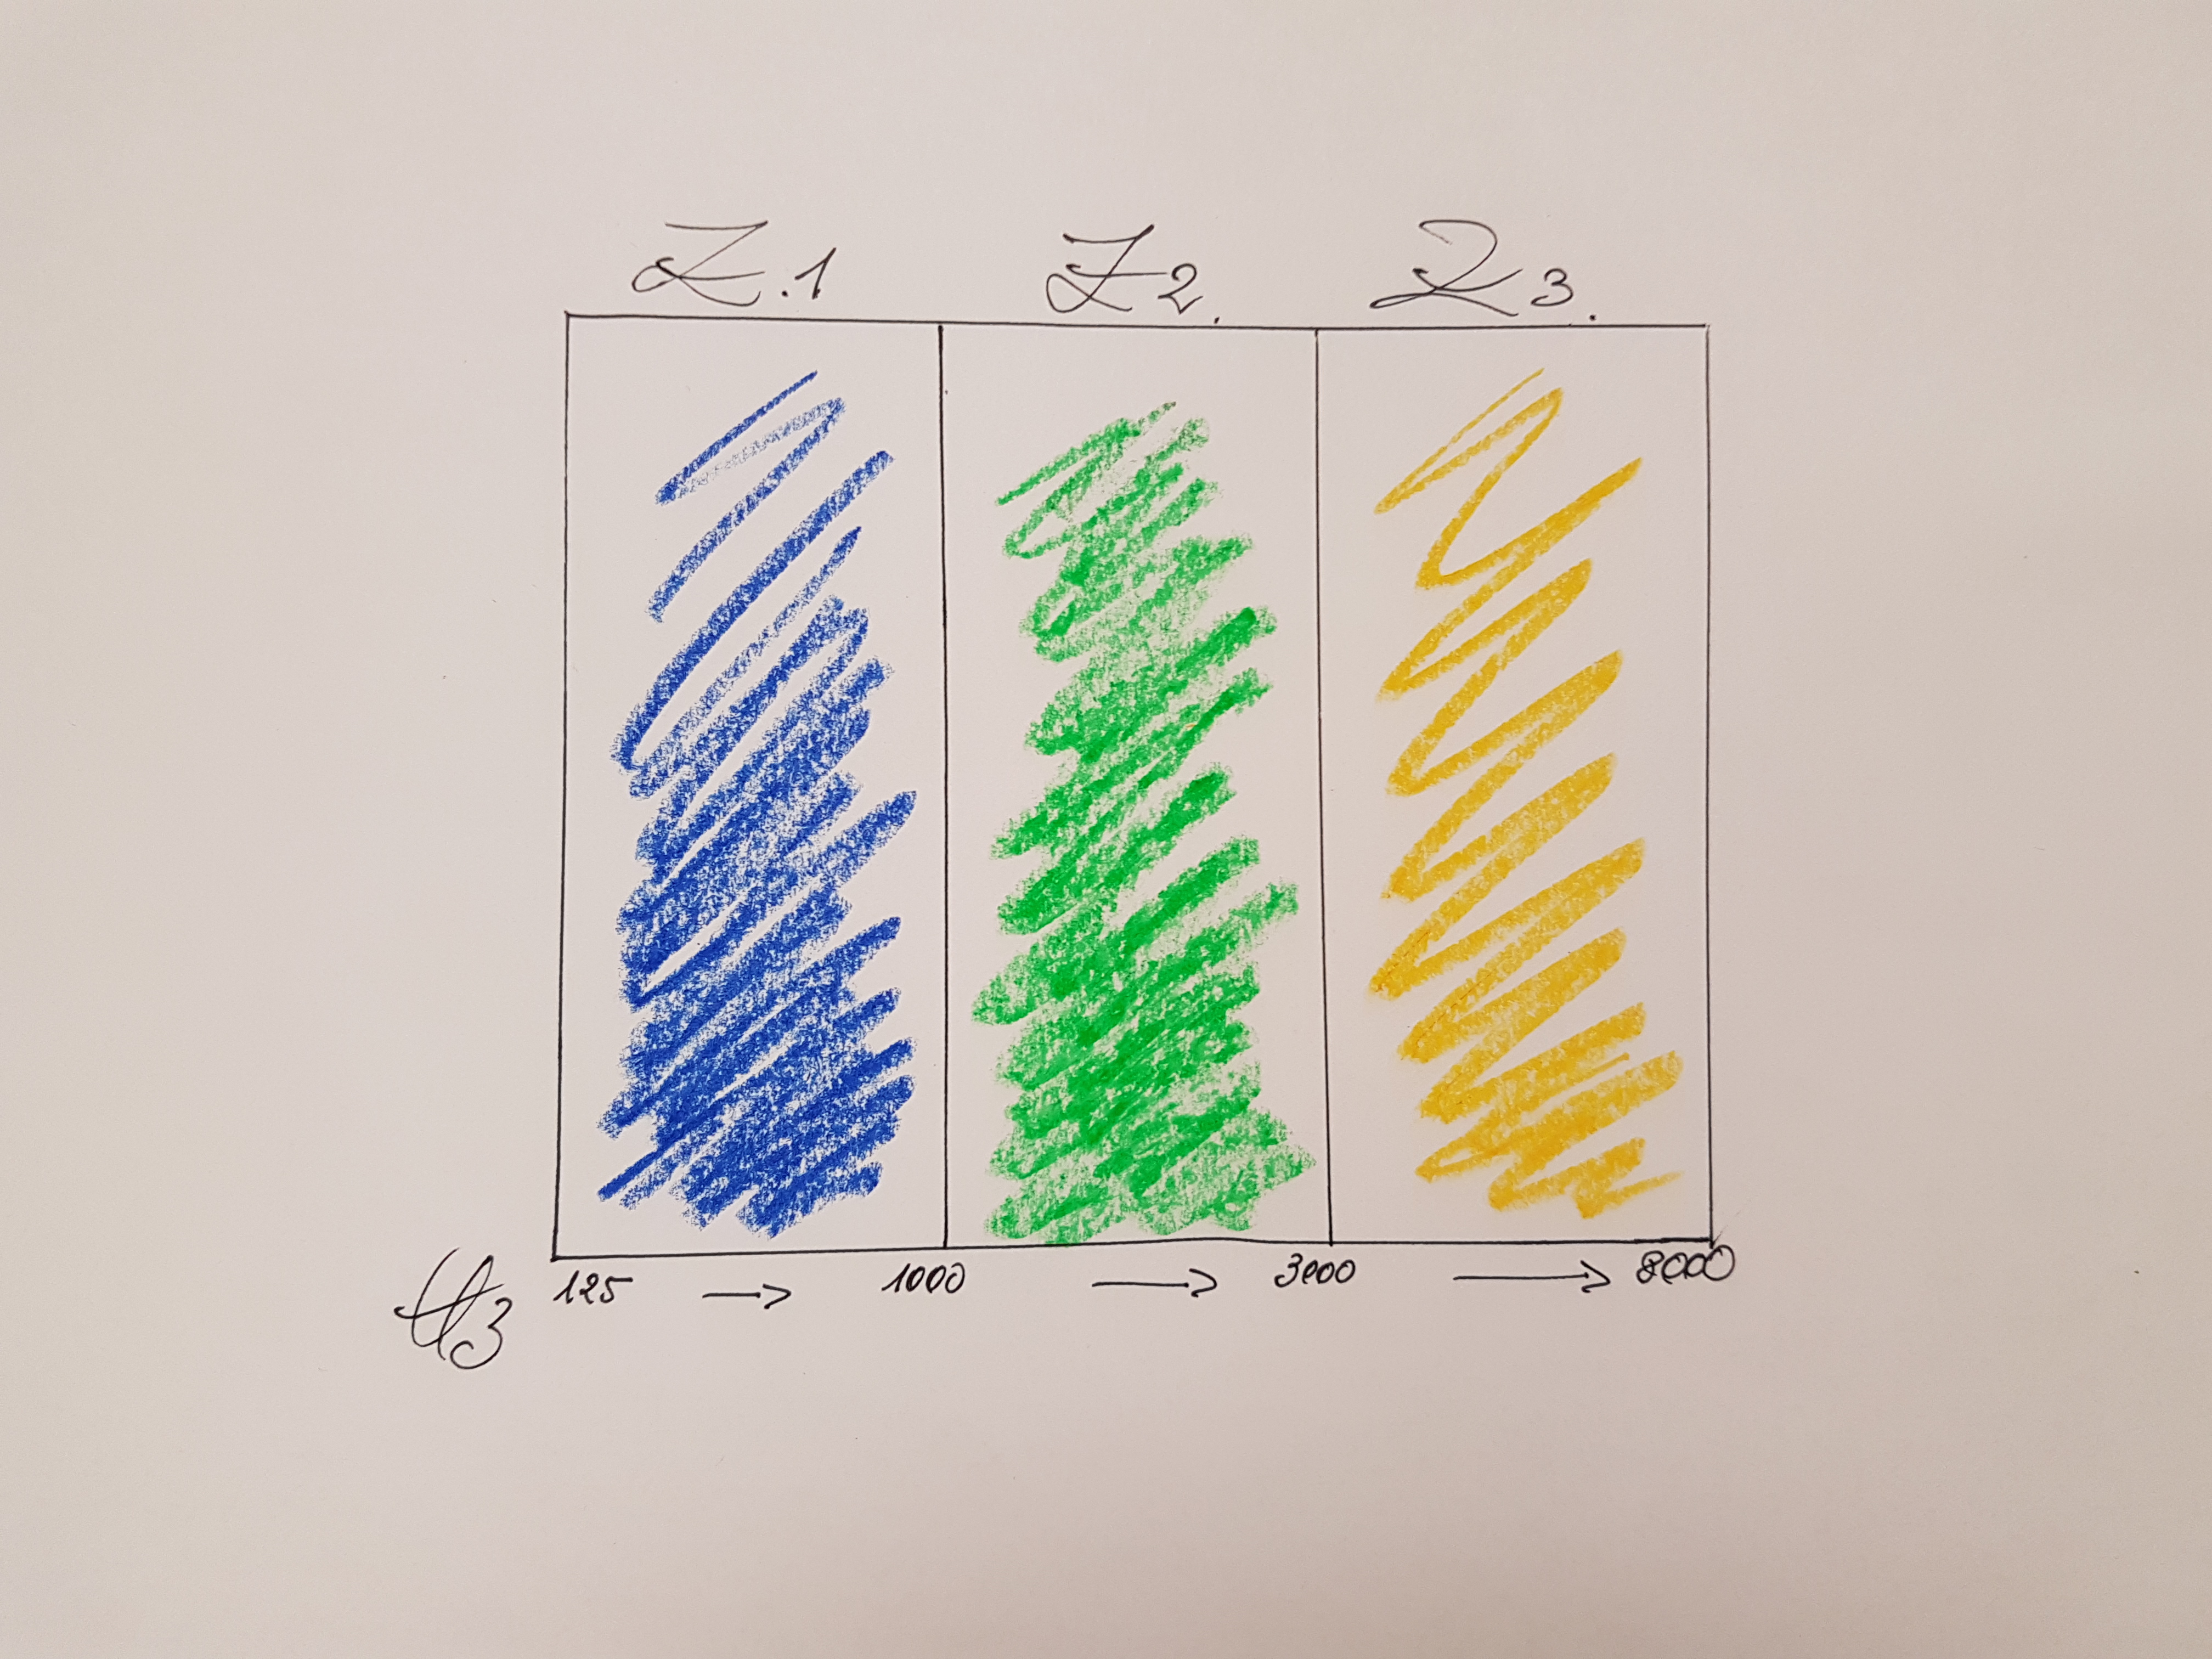 Z.1 Z2. Z3.
Hz 125 → 1000 → 3000 → 8000